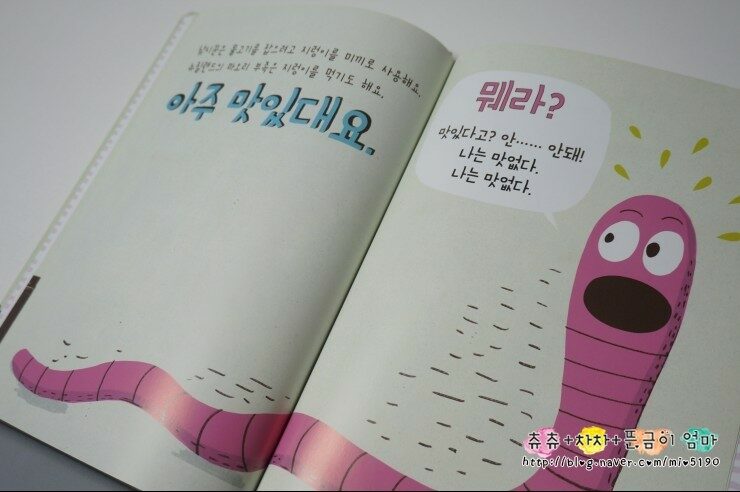 낚시꾼은 물고기를 잡으려고 지렁이를 미끼로 사용해요.
뉴질랜드의 마오리 부족은 지렁이를 먹기도 해요.
아주 맛있대요.
뭬라?
맛있다고? 안...... 안돼!
나는 맛없다.
나는 맛없다.
츄츄+차차+뜬금이 엄마
http://blog.naver.com/mi*5190